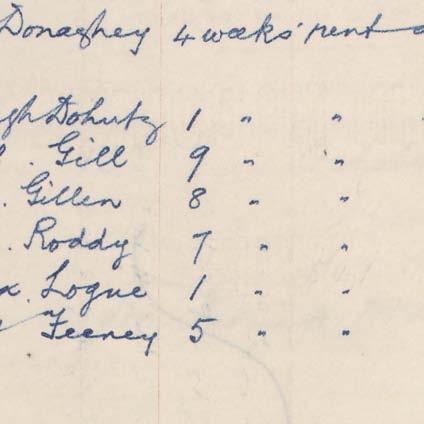 Donaghey 4 weeks' rent
Dohutz 1 " "
. Gill 9 " "
. Gillen 8 " "
. Roddy 7 " "
x. Logue 1 " "
Feeney 5 " "